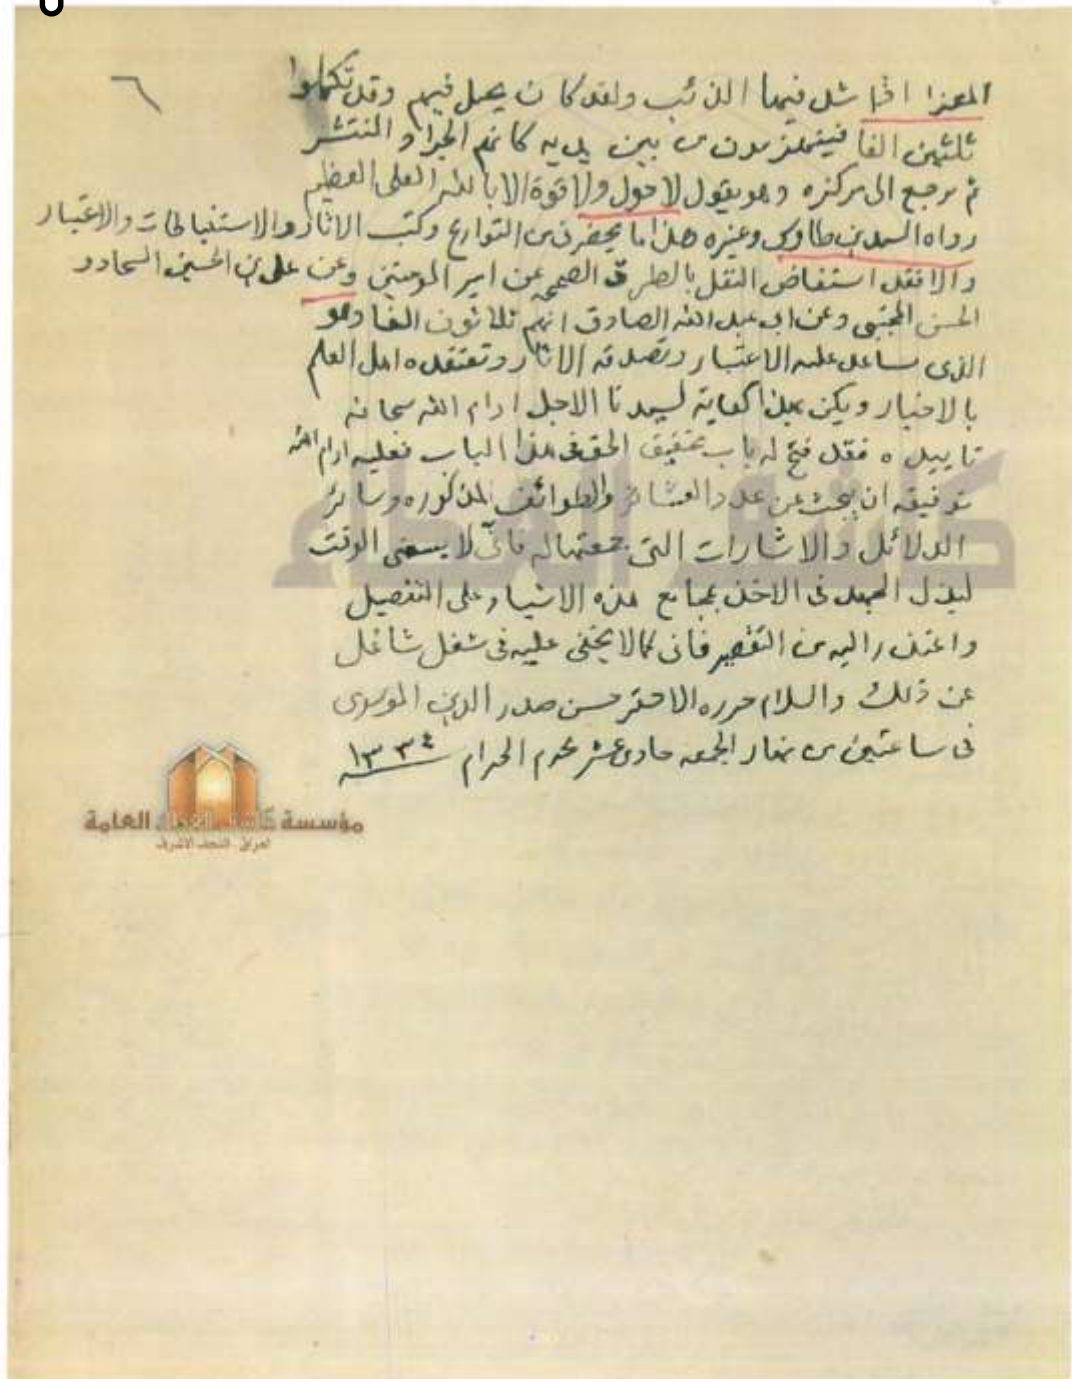 ٦
المعزا اذا شد فيها الذئب ولقد كان يحمل فيهم وقد تكملوا
ثلثين الفا فينهزمون من بين يديه كانهم الجراد المنتشر
ثم يرجع الى مركزه وهو يقول لا حول ولا قوة الا بالله العلي العظيم
رواه السيد بن طاوس وغيره هذا ما يحضرني من التواريخ وكتب الاثار والاستنباطات والاعتبار
والا فقد استفاض النقل بالطرق الصحيحه عن امير المومنين وعن علي بن الحسين السجاد و
الحسن المجتبى وعن ابي عبد الله الصادق انهم ثلاثون الفا وهو
الذي ساعد عليه الاعتبار وتصدقه الاثار وتعتقده اهل العلم
بالاخبار ويكن بهذا كفاية لسيدنا الاجل ادام الله سبحانه
تاييده فقد فتح له باب تحقيق الحق في هذا الباب فعليه ادام الله
توفيقه ان يبحث عن عدد العشائر والطوائف المذكوره وسائر
الدلائل والاشارات التي جمعتها له فاني لا يسعني الوقت
لبذل الجهد في الاخذ بمجامع هذه الاشياء على التفصيل
واعتذر اليه من التقصير فاني كما لا يخفى عليه في شغل شاغل
عن ذلك والسلام حرره الاحقر حسن صدر الدين الموسوي
في ساعتين من نهار الجمعه حادي عشر محرم الحرام ١٣٣٤
كاشف الغطاء
مؤسسة كاشف الغطاء العامة
العراق - النجف الاشرف